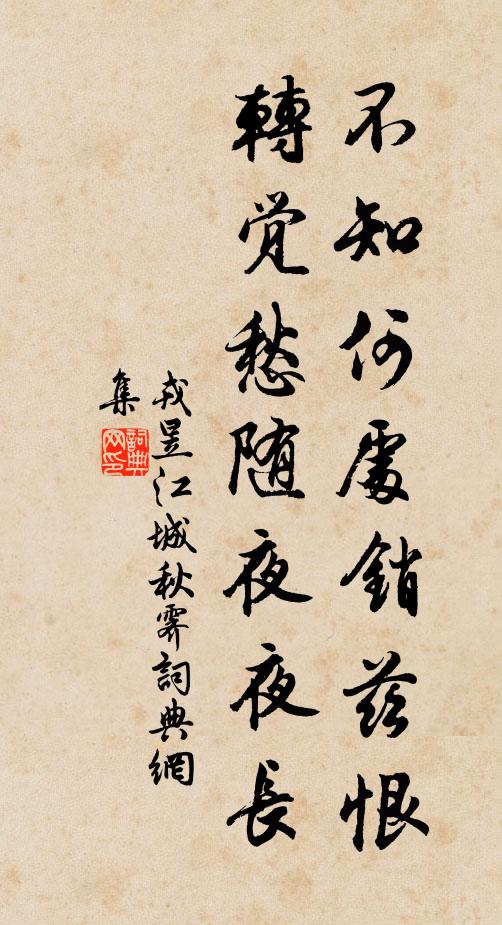 不知何處銷茲恨
轉覺愁随夜夜長
戎昱江城秋霽詞典網
集
詞典網印